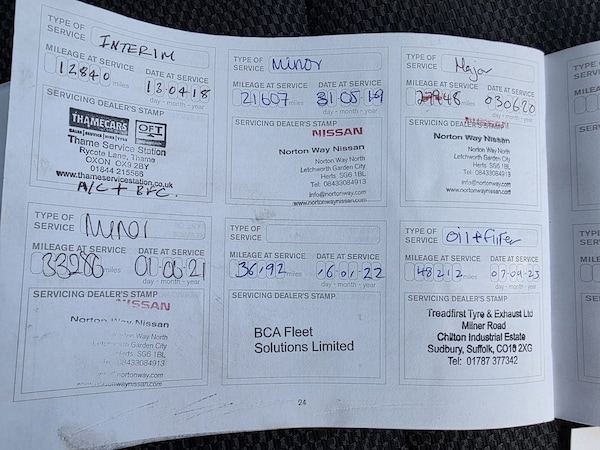 TYPE OF SERVICE INTERIM
MILEAGE AT SERVICE DATE AT SERVICE
12840 miles 13 04 18
day - month - year
SERVICING DEALER'S STAMP
THAMECARS OFT
Thame Service Station
Rycote Lane, Thame
OXON OX9 2BY
01844 215566
www.thameservicestation.co.uk
A/C + BFC.
TYPE OF SERVICE Minor
MILEAGE AT SERVICE DATE AT SERVICE
21607 miles 31 05 19
day - month - year
SERVICING DEALER'S STAMP
NISSAN
Norton Way Nissan
Norton Way North
Letchworth Garden City
Herts SG6 1BL
Tel: 08433084913
info@nortonway.com
www.nortonwaynissan.com
TYPE OF SERVICE Major
MILEAGE AT SERVICE DATE AT SERVICE
48 miles 03 06 20
day - month - year
SERVICING DEALER'S STAMP
Norton Way Nissan
Norton Way North
Letchworth Garden City
Herts SG6 1BL
Tel: 08433084913
info@nortonway.com
www.nortonwaynissan.com
TYPE OF SERVICE Minor
MILEAGE AT SERVICE DATE AT SERVICE
33286 miles 01 06 21
day - month - year
SERVICING DEALER'S STAMP
NISSAN
Norton Way Nissan
Norton Way North
Letchworth Garden City
Herts SG6 1BL
Tel: 08433084913
info@nortonway.com
www.nortonwaynissan.com
TYPE OF SERVICE
MILEAGE AT SERVICE DATE AT SERVICE
36192 miles 16 01 22
day - month - year
SERVICING DEALER'S STAMP
BCA Fleet
Solutions Limited
TYPE OF SERVICE oil + filter
MILEAGE AT SERVICE DATE AT SERVICE
48212 miles 07 09 23
day - month - year
SERVICING DEALER'S STAMP
Treadfirst Tyre & Exhaust Ltd
Milner Road
Chilton Industrial Estate
Sudbury, Suffolk, CO10 2XG
Tel: 01787 377342
24